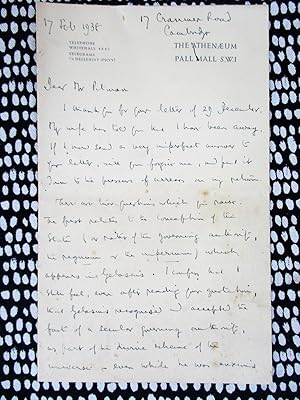 17 Feb 1938
17 Cranmer Road
Cambridge
TELEPHONE
WHITEHALL
TELEGRAMS
THE ATHENÆUM
PALL MALL S.W.1
Dear Mr Pitman
I thank you for your letter of 29 December.
My wife has told you that I have been away.
If I now send a very imperfect answer to
your letter, will you forgive me, and put it
down to the pressure of arrears on my return
There are two questions which you raise.
The first relates to the conception of the
State (or rather of the governing authority,
the regnum or the imperium) which
appears in Gelasius. I confess that I
still feel, even after reading your quotations,
that Gelasius recognised and accepted the
fact of a secular governing authority,
as part of the divine scheme of the
universe - even while he was anxious